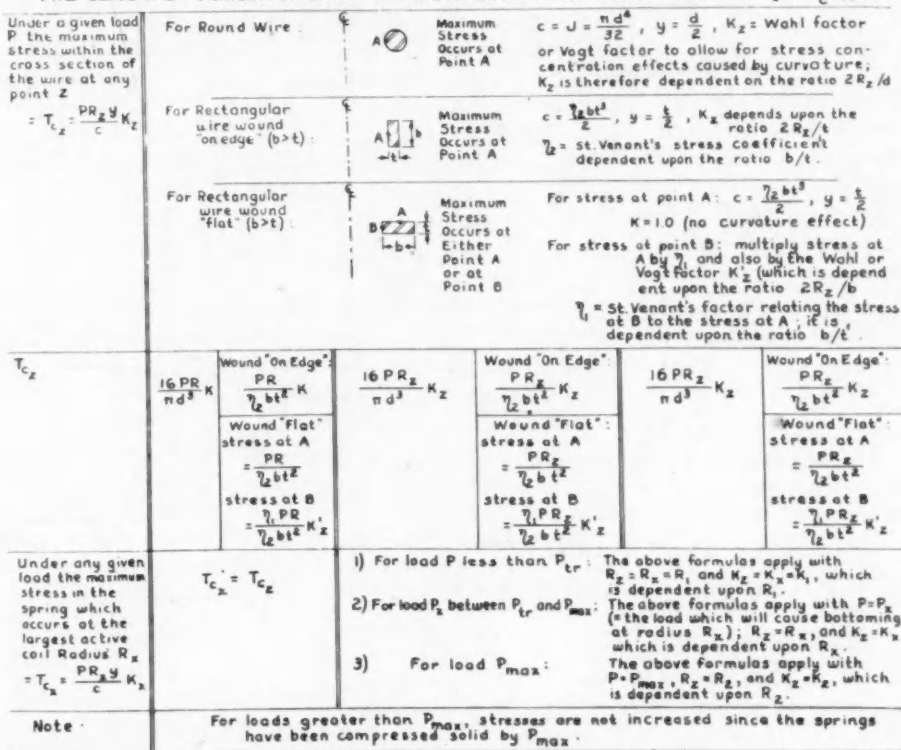 Under a given load
P the maximum
stress within the
cross section of
the wire at any
point Z
= T_cz = PR_z y / c K_z
For Round Wire :
℄
A
Maximum
Stress
Occurs at
Point A
c = J = πd⁴/32 , y = d/2 , K_z = Wahl factor
or Vogt factor to allow for stress con-
centration effects caused by curvature;
K_z is therefore dependent on the ratio 2R_z/d
For Rectangular
wire wound
"on edge" (b>t) :
℄
A b
t
Maximum
Stress
Occurs at
Point A
c = η₂bt³/2 , y = t/2 , K_z depends upon the
ratio 2R_z/t
η₂ = St. Venant's stress coefficient
dependent upon the ratio b/t .
For Rectangular
wire wound
"flat" (b>t) :
℄
A
B t
b
Maximum
Stress
Occurs at
Either
Point A
or at
Point B
For stress at point A : c = η₂bt³/2 , y = t/2
K = 1.0 (no curvature effect)
For stress at point B : multiply stress at
A by η₁ and also by the Wahl or
Vogt factor K'_z (which is depend
ent upon the ratio 2R_z/b
η₁ = St. Venant's factor relating the stress
at B to the stress at A ; it is
dependent upon the ratio b/t .
T_cz
16 PR / πd³ K
Wound "On Edge":
PR / η₂bt² K
Wound "Flat"
stress at A
= PR / η₂bt²
stress at B
= η₁PR / η₂bt² K'_z
16 PR_z / πd³ K_z
Wound "On Edge":
PR_z / η₂bt² K_z
Wound "Flat" :
stress at A
= PR_z / η₂bt²
stress at B
= η₁PR_z / η₂bt² K'_z
16 PR_z / πd³ K_z
Wound "On Edge":
PR_z / η₂bt² K_z
Wound "Flat" :
stress at A
= PR_z / η₂bt²
stress at B
= η₁PR_z / η₂bt² K'_z
Under any given
load the maximum
stress in the
spring which
occurs at the
largest active
coil Radius R_x
= T_cx = PR_x y / c K_x
T_cx = T_cz
1) For load P less than P_tr : The above formulas apply with
R_z = R_x = R₁ and K_z = K_x = K₁, which
is dependent upon R₁.
2) For load P_x between P_tr and P_max : The above formulas apply with P = P_x
(= the load which will cause bottoming
at radius R_x) ; R_z = R_x, and K_z = K_x
which is dependent upon R_x.
3) For load P_max : The above formulas apply with
P = P_max, R_z = R₂, and K_z = K₂, which
is dependent upon R₂.
Note ·
For loads greater than P_max, stresses are not increased since the springs
have been compressed solid by P_max .